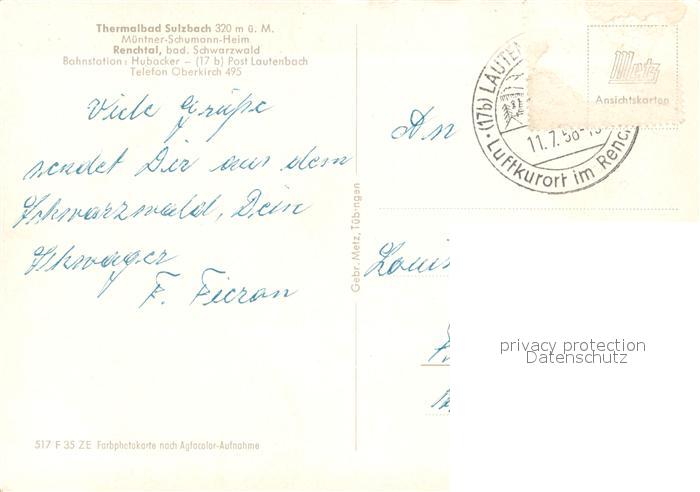 Thermalbad Sulzbach 320 m ü. M.
Müntner-Schumann-Heim
Renchtal, bad. Schwarzwald
Bahnstation: Hubacker – (17 b) Post Lautenbach
Telefon Oberkirch 495
Viele Grüße
sendet Dir aus dem
Schwarzwald, Dein
Schwager
F.
517 F 35 ZE Farbphotokarte nach Agfacolor-Aufnahme
Gebr. Metz, Tübingen
Metz
Ansichtskarten
(17b) LAUTEN
11.7.58-1
Luftkurort im Rench
An
Louis
privacy protection
Datenschutz